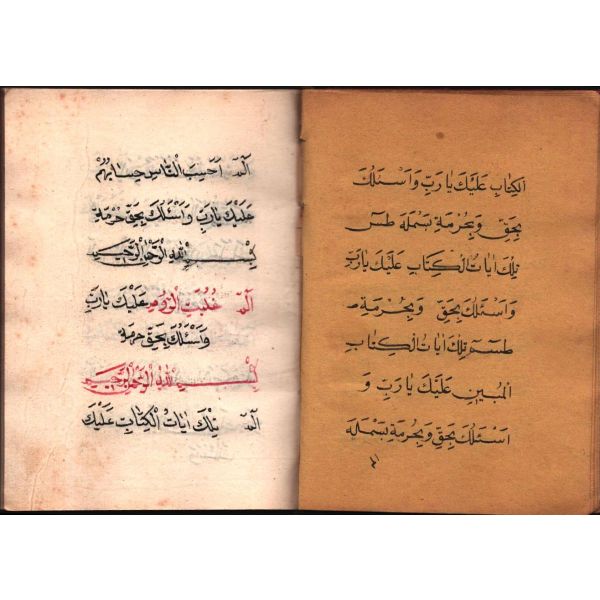 الكِتَابِ عَلَيْكَ يَارَبِّ وَاَسْئَلُكَ
بِحَقِّ وَبِحُرْمَةِ بَسْمَلَهِ طٰسٓ
تِلْكَ اٰيَاتُ الْكِتَابِ عَلَيْكَ يَارَبِّ
وَاَسْئَلُكَ بِحَقِّ وَبِحُرْمَةِ
طٰسٓمٓ تِلْكَ اٰيَاتُ الْكِتَابِ
الْمُبِينِ عَلَيْكَ يَارَبِّ وَ
اَسْئَلُكَ بِحَقِّ وَبِحُرْمَةِ بَسْمَلَهِ
الٓمٓ اَحَسِبَ النَّاسُ حِسَابُهُمْ
عَلَيْكَ يَارَبِّ وَاَسْئَلُكَ بِحَقِّ حُرْمَةِ
بِسْمِ اللهِ الرَّحْمٰنِ الرَّحِيمِ
الٓمٓ غُلِبَتِ الرُّومُ عَلَيْكَ يَارَبِّ
وَاَسْئَلُكَ بِحَقِّ حُرْمَةِ
بِسْمِ اللهِ الرَّحْمٰنِ الرَّحِيمِ
الٓمٓ تِلْكَ اٰيَاتُ الْكِتَابِ عَلَيْكَ